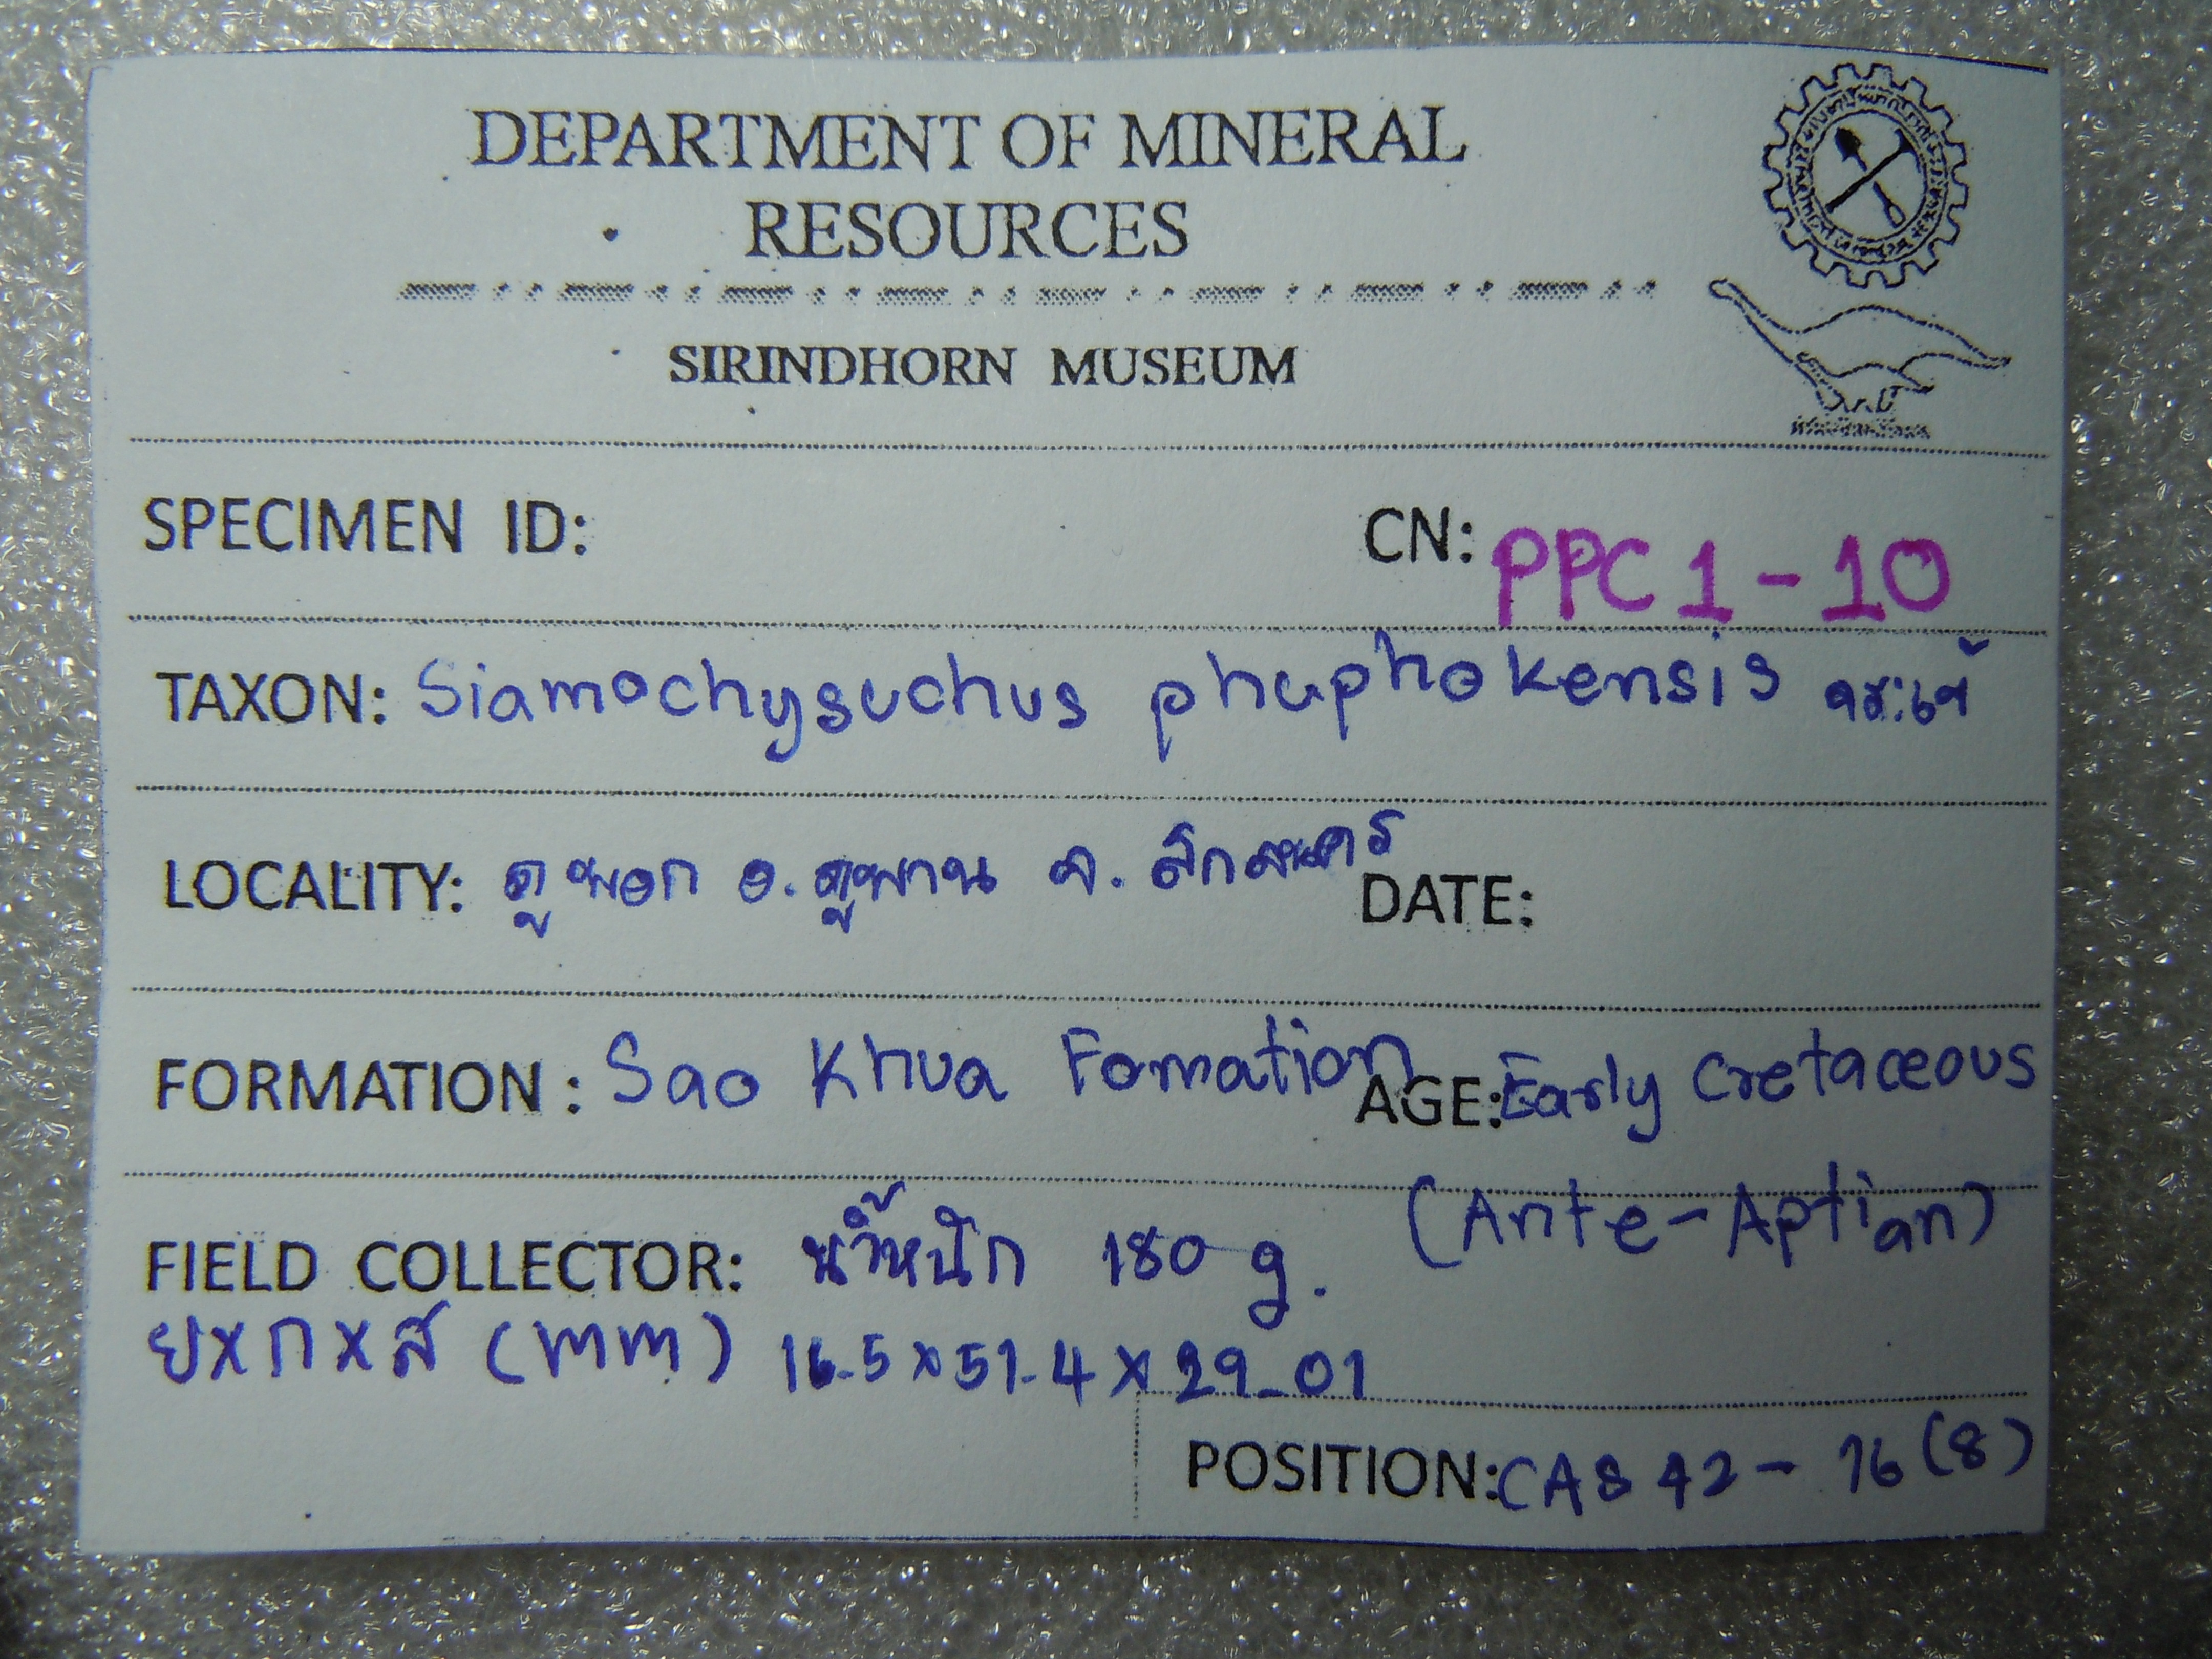 DEPARTMENT OF MINERAL
RESOURCES
SIRINDHORN MUSEUM
SPECIMEN ID:
CN: PPC 1-10
TAXON: Siamochysuchus phuphokensis จระเข้
LOCALITY: ภูพอก อ.ภูพาน จ.สกลนคร DATE:
FORMATION: Sao Khua Fomation AGE: Early Cretaceous
(Ante-Aptian)
FIELD COLLECTOR: น้ำหนัก 180 g.
ยxกxส (mm) 16.5x51.4x29.01
POSITION: CAS 42-16(8)